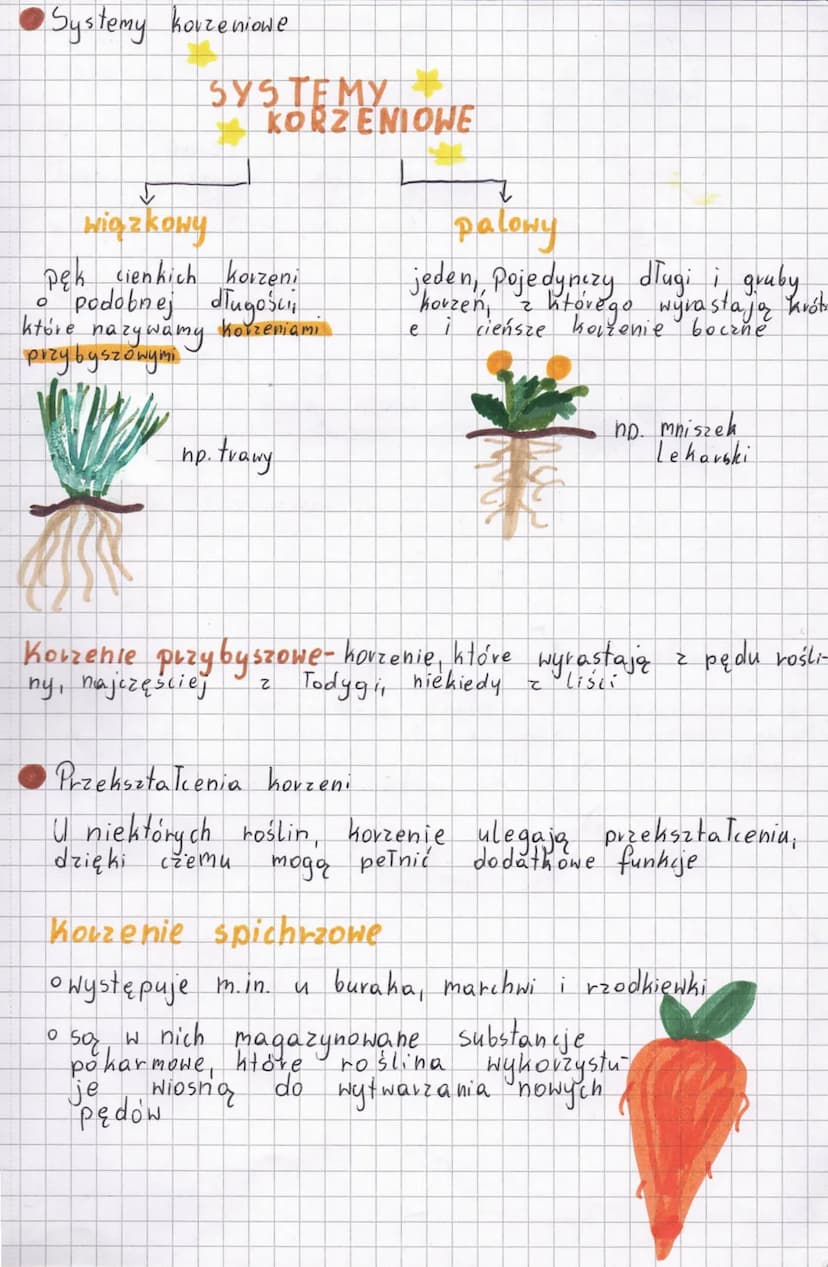 Systemy korzeniowe
SYSTEMY
KORZENIOWE
wiązkowy
pęk cienkich korzeni
o podobnej długości,
które nazywamy korzeniami
przybyszowymi
np. trawy
palowy
jeden, Pojedynczy długi i gruby
korzeń, z którego wyrastają krótsz
e i cieńsze korzenie boczne
np. mniszek
lekarski
Korzenie przybyszowe- korzenie, które wyrastają z pędu rośli-
ny, najczęściej z łodygi, niekiedy z liści
Przekształcenia korzeni
U niektórych roślin, korzenie ulegają przekształceniu,
dzięki czemu mogą pełnić dodatkowe funkcje
Korzenie spichrzowe
występuje m.in. u buraka, marchwi i rzodkiewki
są w nich magazynowane substancje
pokarmowe, które roślina wykorzystu-
je wiosną do wytwarzania nowych
pędów